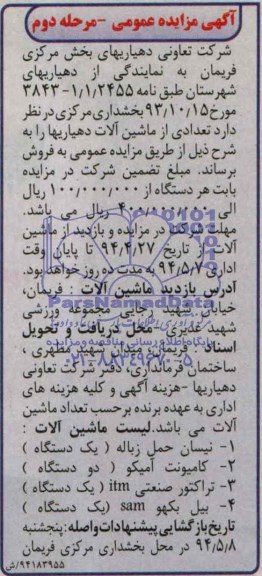 آگهی مزایده عمومی -مرحله دوم
شرکت تعاونی دهیاریهای بخش مرکزی
فریمان به نمایندگی از دهیاریهای
شهرستان طبق نامه ۱/۱/۲۴۵۵-۳۸۴۳
مورخ ۹۳،۱۰،۱۵ بخشداری مرکزی در نظر
دارد تعدادی از ماشین آلات دهیاریها را به
شرح ذیل از طریق مزایده عمومی به فروش
برساند. مبلغ تضمین شرکت در مزایده
بابت هر دستگاه از ۱۰۰,۰۰۰,۰۰۰ ریال
الی ۴۰۰,۰۰۰,۰۰۰ ریال می باشد.
مهلت شرکت در مزایده و بازدید از ماشین
آلات از تاریخ ۹۴،۴،۲۷ تا پایان وقت
اداری ۹۴،۵،۷ به مدت ده روز خواهد بود.
آدرس بازدید ماشین آلات : فریمان،
خیابان شهید رجایی مجموعه ورزشی
شهید غدیری. محل دریافت و تحویل
اسناد : فریمان، میدان شهید مطهری ،
ساختمان فرمانداری، دفتر شرکت تعاونی
دهیاریها -هزینه آگهی و کلیه هزینه های
اداری به عهده برنده برحسب تعداد ماشین
آلات می باشد. لیست ماشین آلات :
۱- نیسان حمل زباله ( یک دستگاه )
۲- کامیونت آمیکو ( دو دستگاه )
۳- تراکتور صنعتی itm ( یک دستگاه )
۴- بیل بکهو sam (یک دستگاه )
تاریخ بازگشایی پیشنهادات واصله : پنجشنبه
۹۴،۵،۸ در محل بخشداری مرکزی فریمان
۹۴۱۸۳۹۵۵/ش
ParsNamadData
پایگاه اطلاع رسانی مناقصه و مزایده
۰۲۱-۸۸۳۴۹۶۷۰-۵